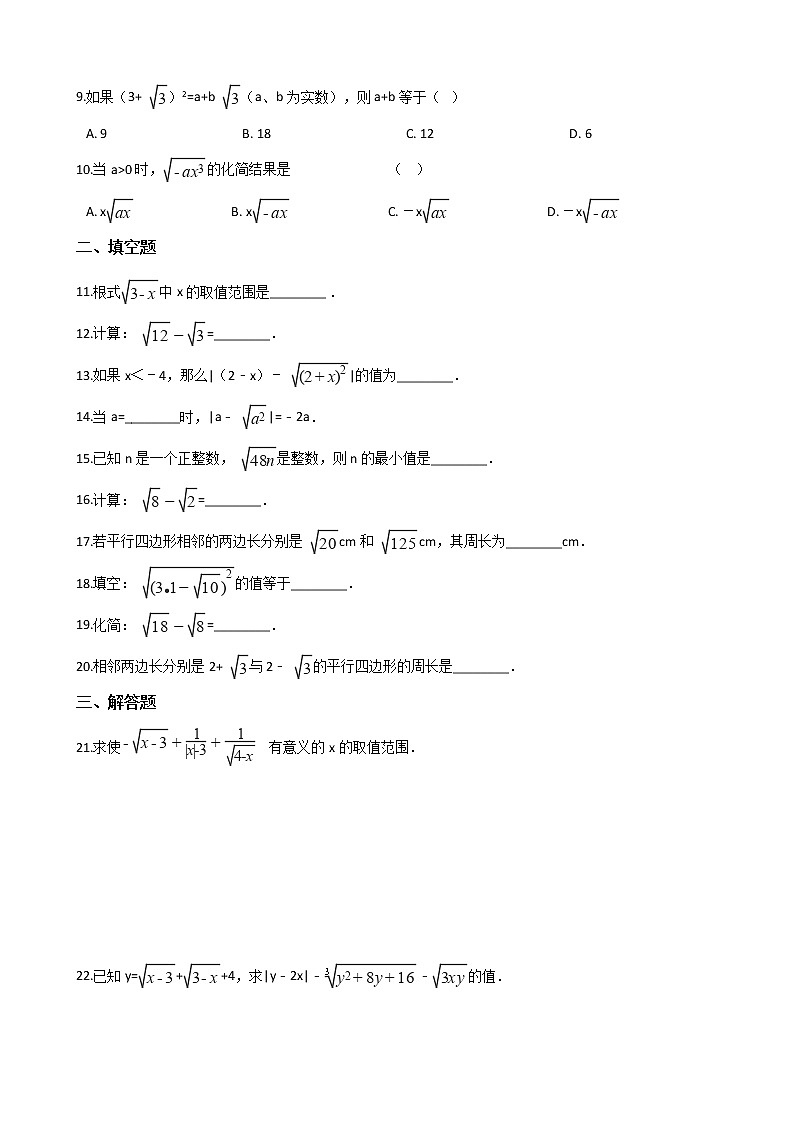 9.如果(3+ √3)²=a+b √3(a、b为实数),则a+b等于( )
A. 9 B. 18 C. 12 D. 6
10.当a>0时,√(-ax³)的化简结果是 ( )
A. x√(ax) B. x√(-ax) C. -x√(ax) D. -x√(-ax)
二、填空题
11.根式√(3-x)中x的取值范围是________ .
12.计算: √12-√3=________.
13.如果x<-4,那么|(2-x)- √((2+x)²)|的值为________.
14.当a=________时,|a- √(a²)|=-2a.
15.已知n是一个正整数, √(48n)是整数,则n的最小值是________.
16.计算: √8-√2=________.
17.若平行四边形相邻的两边长分别是 √20cm和 √125cm,其周长为________cm.
18.填空: √((3•1-√10)²)的值等于________.
19.化简: √18-√8=________.
20.相邻两边长分别是2+ √3与2- √3的平行四边形的周长是________.
三、解答题
21.求使-√(x-3)+1/(|x|-3)+1/√(4-x) 有意义的x的取值范围.
22.已知y=√(x-3)+√(3-x)+4,求|y-2x|-∛(y²+8y+16)-√(3xy)的值.